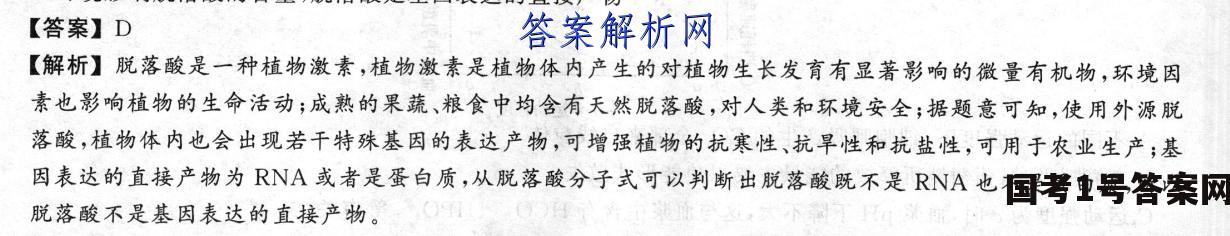 【答案】D
答案解析网
【解析】脱落酸是一种植物激素,植物激素是植物体内产生的对植物生长发育有显著影响的微量有机物,环境因
素也影响植物的生命活动;成熟的果蔬、粮食中均含有天然脱落酸,对人类和环境安全;据题意可知,使用外源脱
落酸,植物体内也会出现若干特殊基因的表达产物,可增强植物的抗寒性、抗旱性和抗盐性,可用于农业生产;基
因表达的直接产物为 RNA 或者是蛋白质,从脱落酸分子式可以判断出脱落酸既不是 RNA 也
国考1号答案网
脱落酸不是基因表达的直接产物。